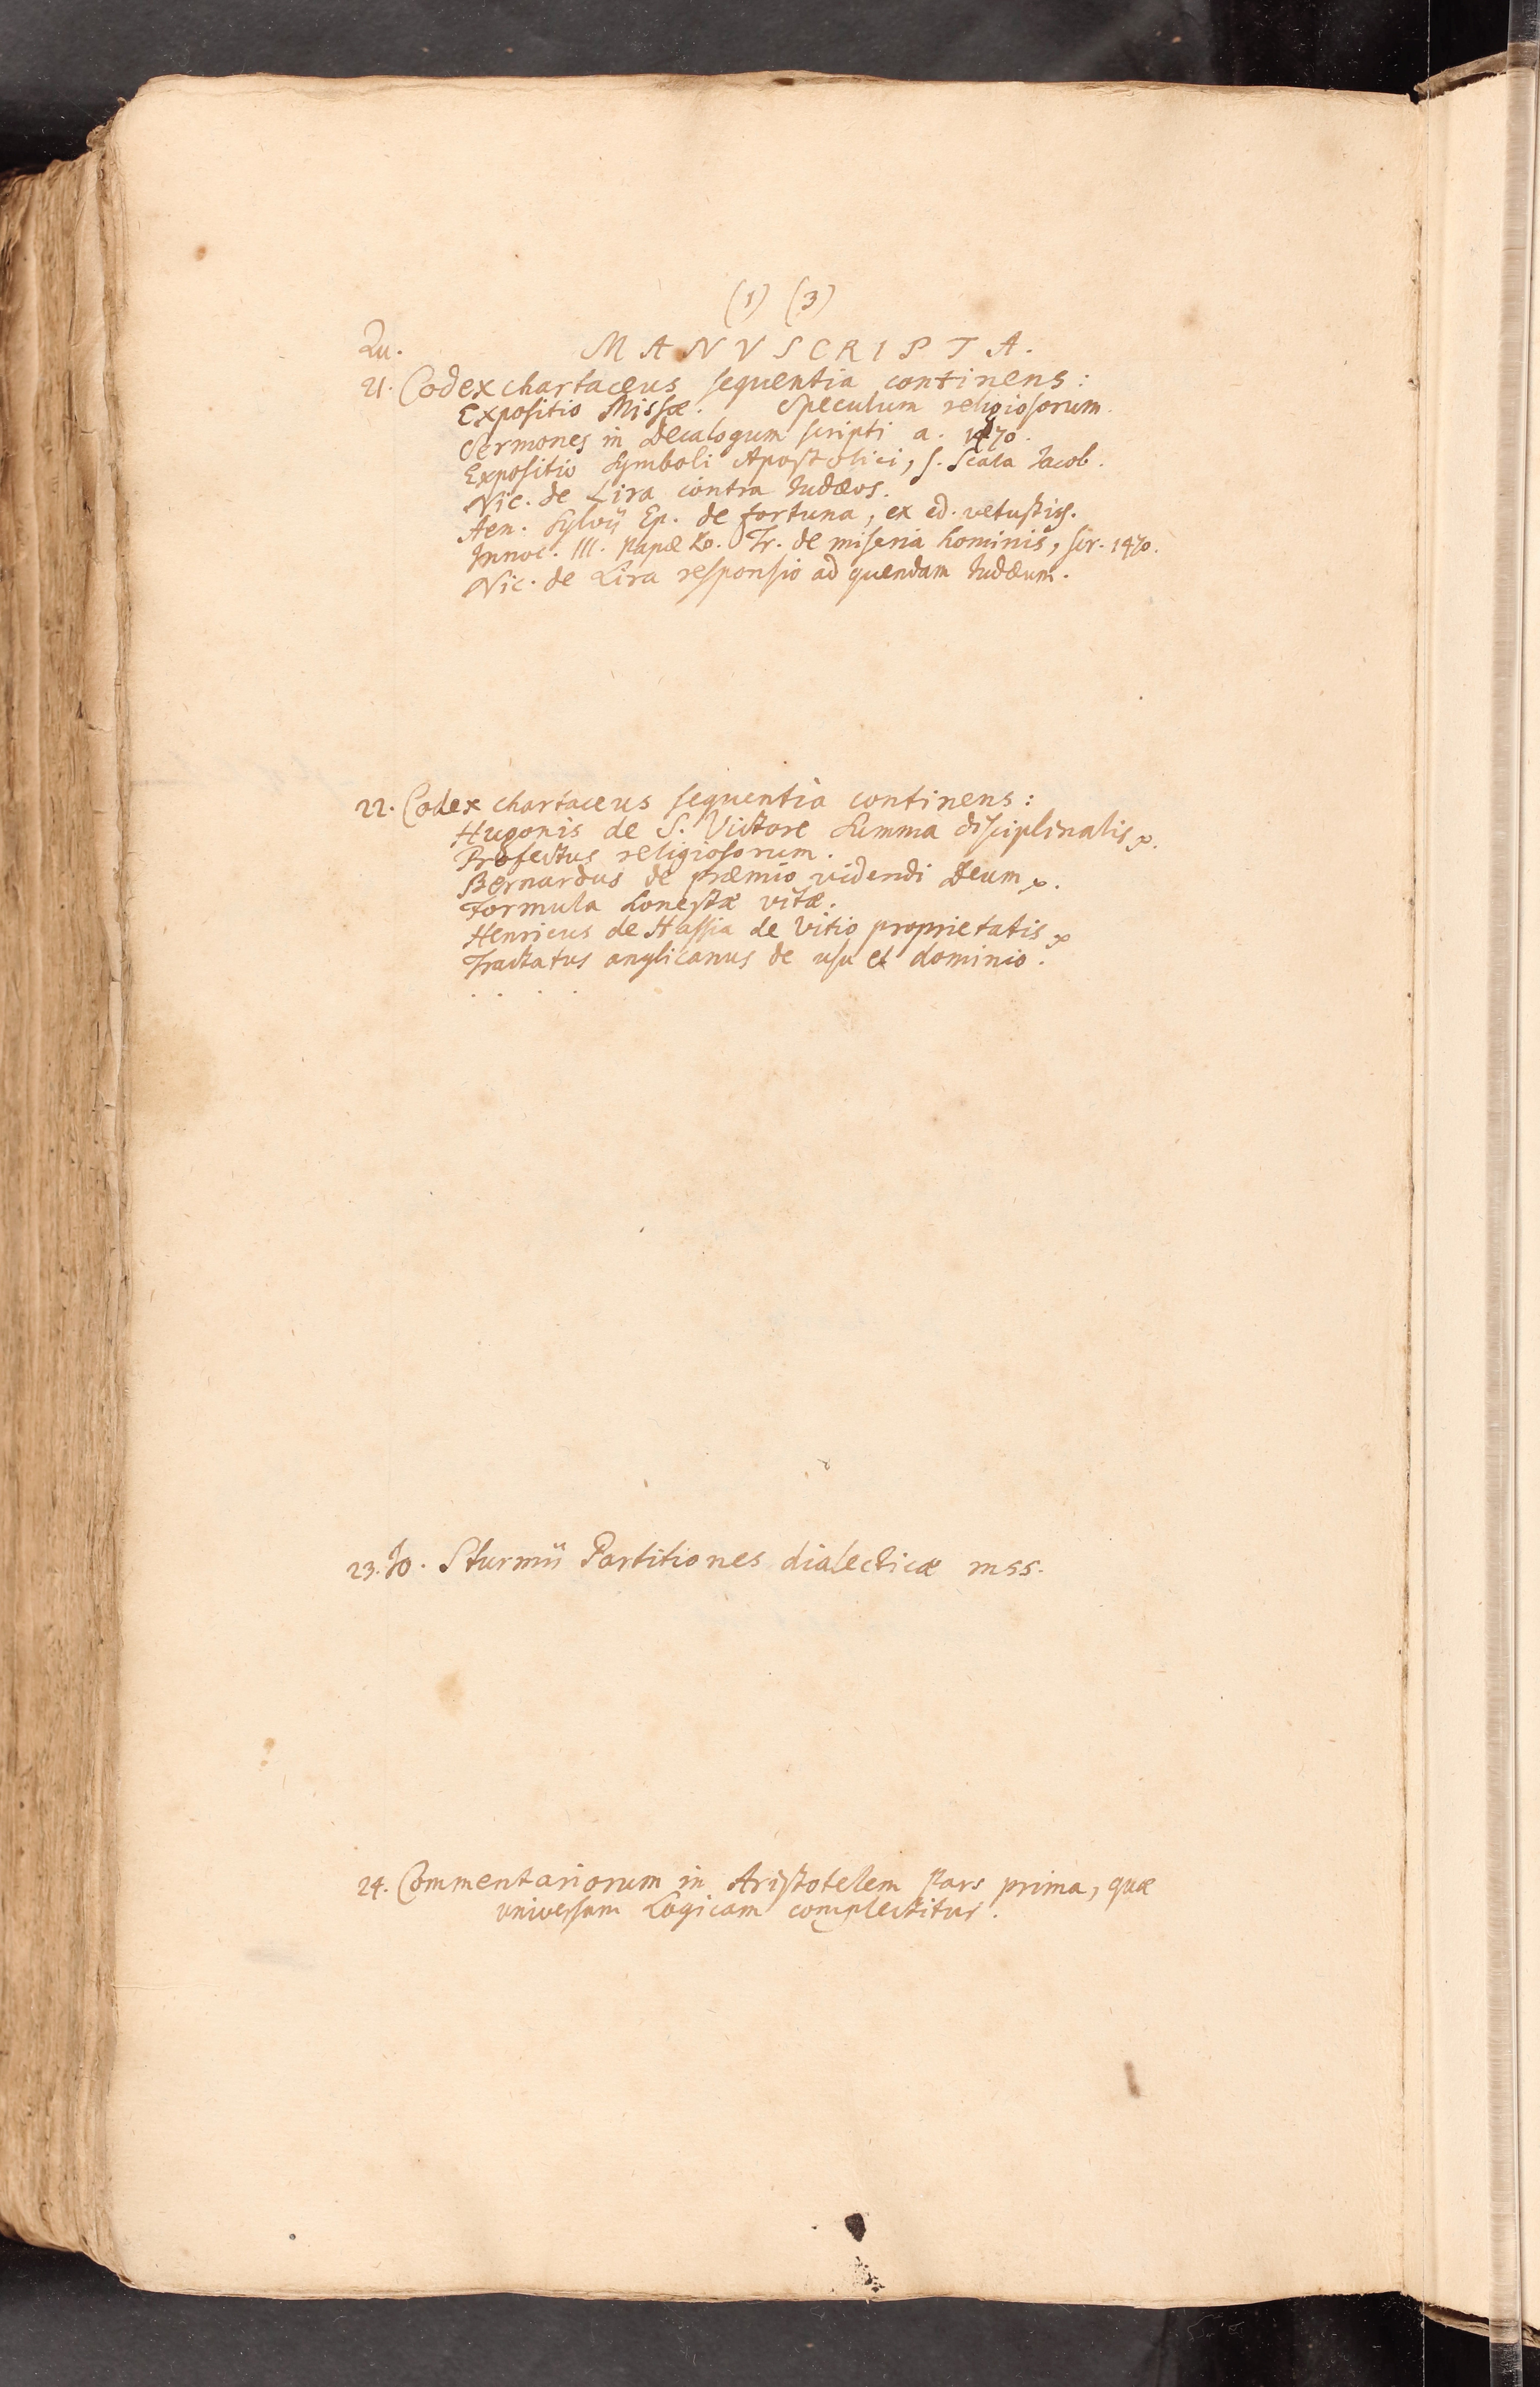 (1) (3)
Qu. MANVSCRIPTA.
21. Codex chartaceus sequentia continens:
Expositio Missæ. Speculum religiosorum.
Sermones in Decalogum scripti a. 1470.
Expositio Symboli Apostolici, s. Scala Jacob.
Nic. de Lira contra Judæos.
Aen. Sylvij Ep. de fortuna, ex ed. vetustiss.
Innoc. III. Papæ Ro. Tr. de miseria hominis, scr. 1470.
Nic. de Lira responsio ad quendam Judæum.
22. Codex chartaceus sequentia continens:
Hugonis de S. Victore Summa disciplinalis
Profectus religiosorum.
Bernardus de præmio videndi Deum
Formula honestæ vitæ.
Henricus de Hassia de Vitio proprietatis
Tractatus anglicanus de usu et dominio.
. . . .
23. Jo. Sturmii Partitiones dialecticæ mss.
24. Commentariorum in Aristotelem Pars prima, quæ
universam Logicam complectitur.